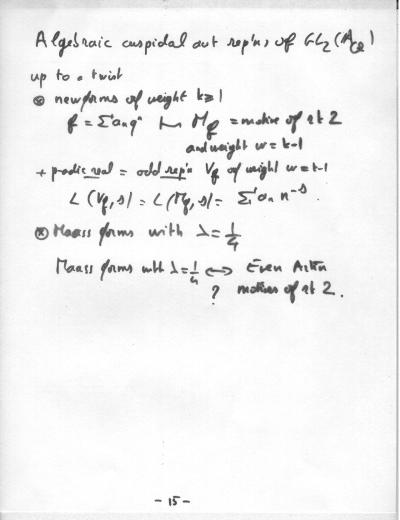 Algebraic cuspidal aut rep'ns of GL₂(A_Q)
up to a twist
⊗ newforms of weight k≥1
f = Σ aₙqⁿ ↦ M_f = motive of rk 2
and weight w = k-1
+ p-adic real = odd rep'n V_f of weight w = k-1
L(V_f, s) = L(M_f, s) = Σ aₙ n⁻ˢ
⊗ Maass forms with λ = 1/4
Maass forms with λ = 1/4 ↔ Even Artin
? motives of rk 2.
- 15 -